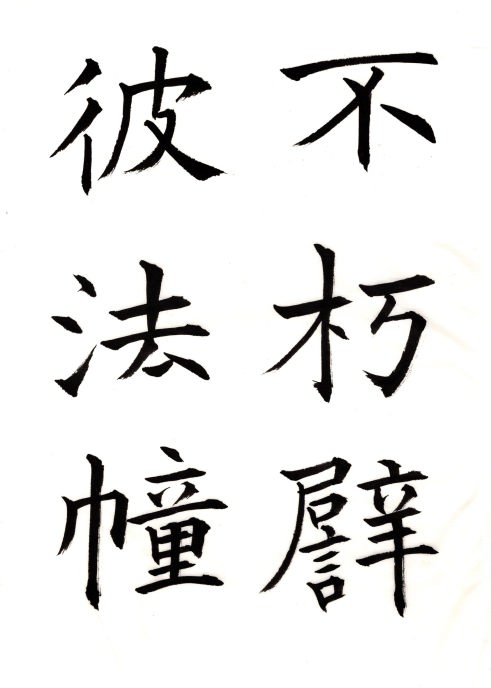 不朽譬
彼法幢